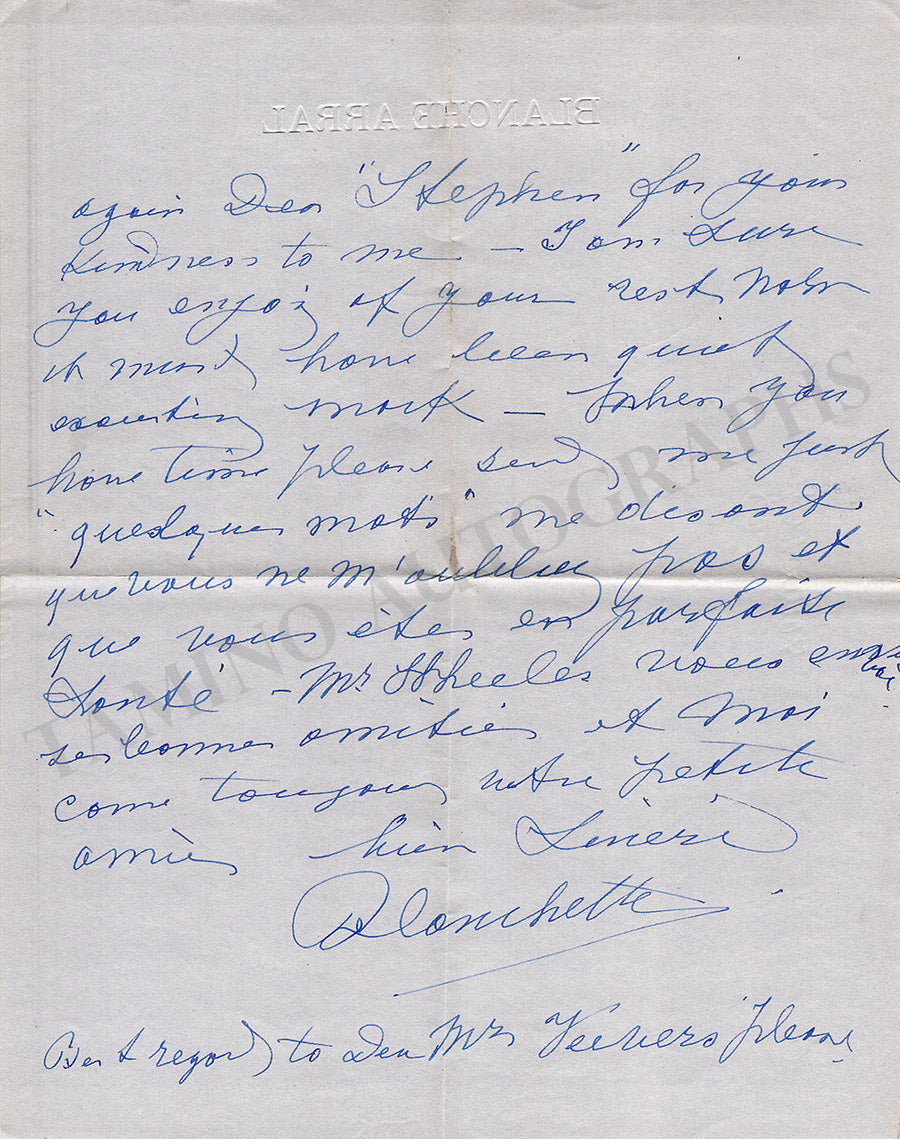 BLANCHE ARRAL
again Dear "Stephen" for your
Kindness to me – I am sure
you enjoy of your rest Now
it must have been quiet
exciting work – When you
have time please send me just
"quelques mots" me disant
que vous ne m'oubliez pas et
que vous êtes en parfaite
Santé – Mr Wheeler vous envoi
ses bonnes amitiés et Moi
come toujours votre petite
amie bien Sincère
Blanchette
Best regard to Dear Mrs Veevers please
TAMINO AUTOGRAPHS